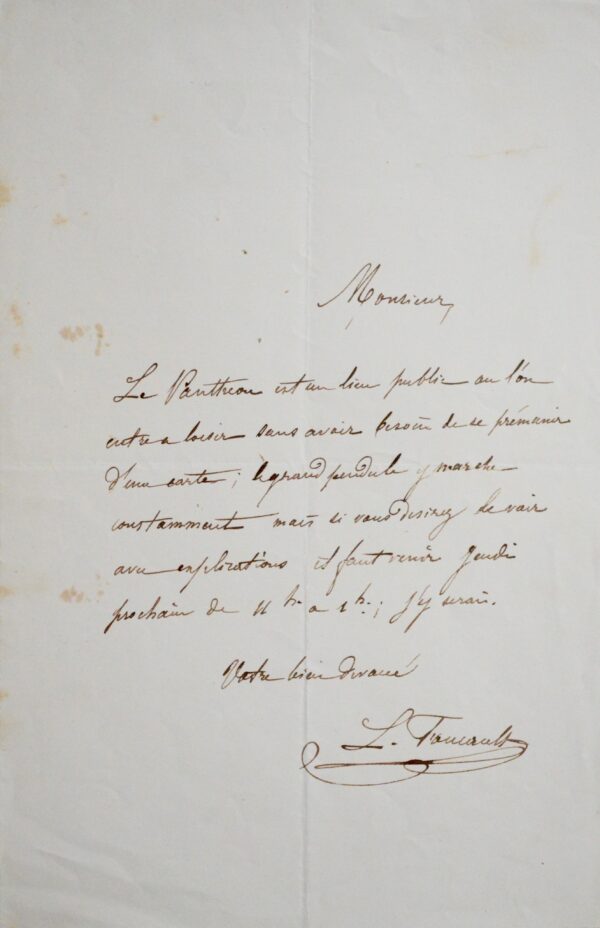 Monsieur,
Le Pantheon est un lieu public ou l'on
entre a loisir sans avoir besoin de se prémunir
d'une carte; le grand pendule y marche
constamment mais si vous desirez le voir
avec explications il faut venir Jeudi
prochain de 11 h. a 1 h.; j'y serai.
Votre bien devoué
L. Foucault